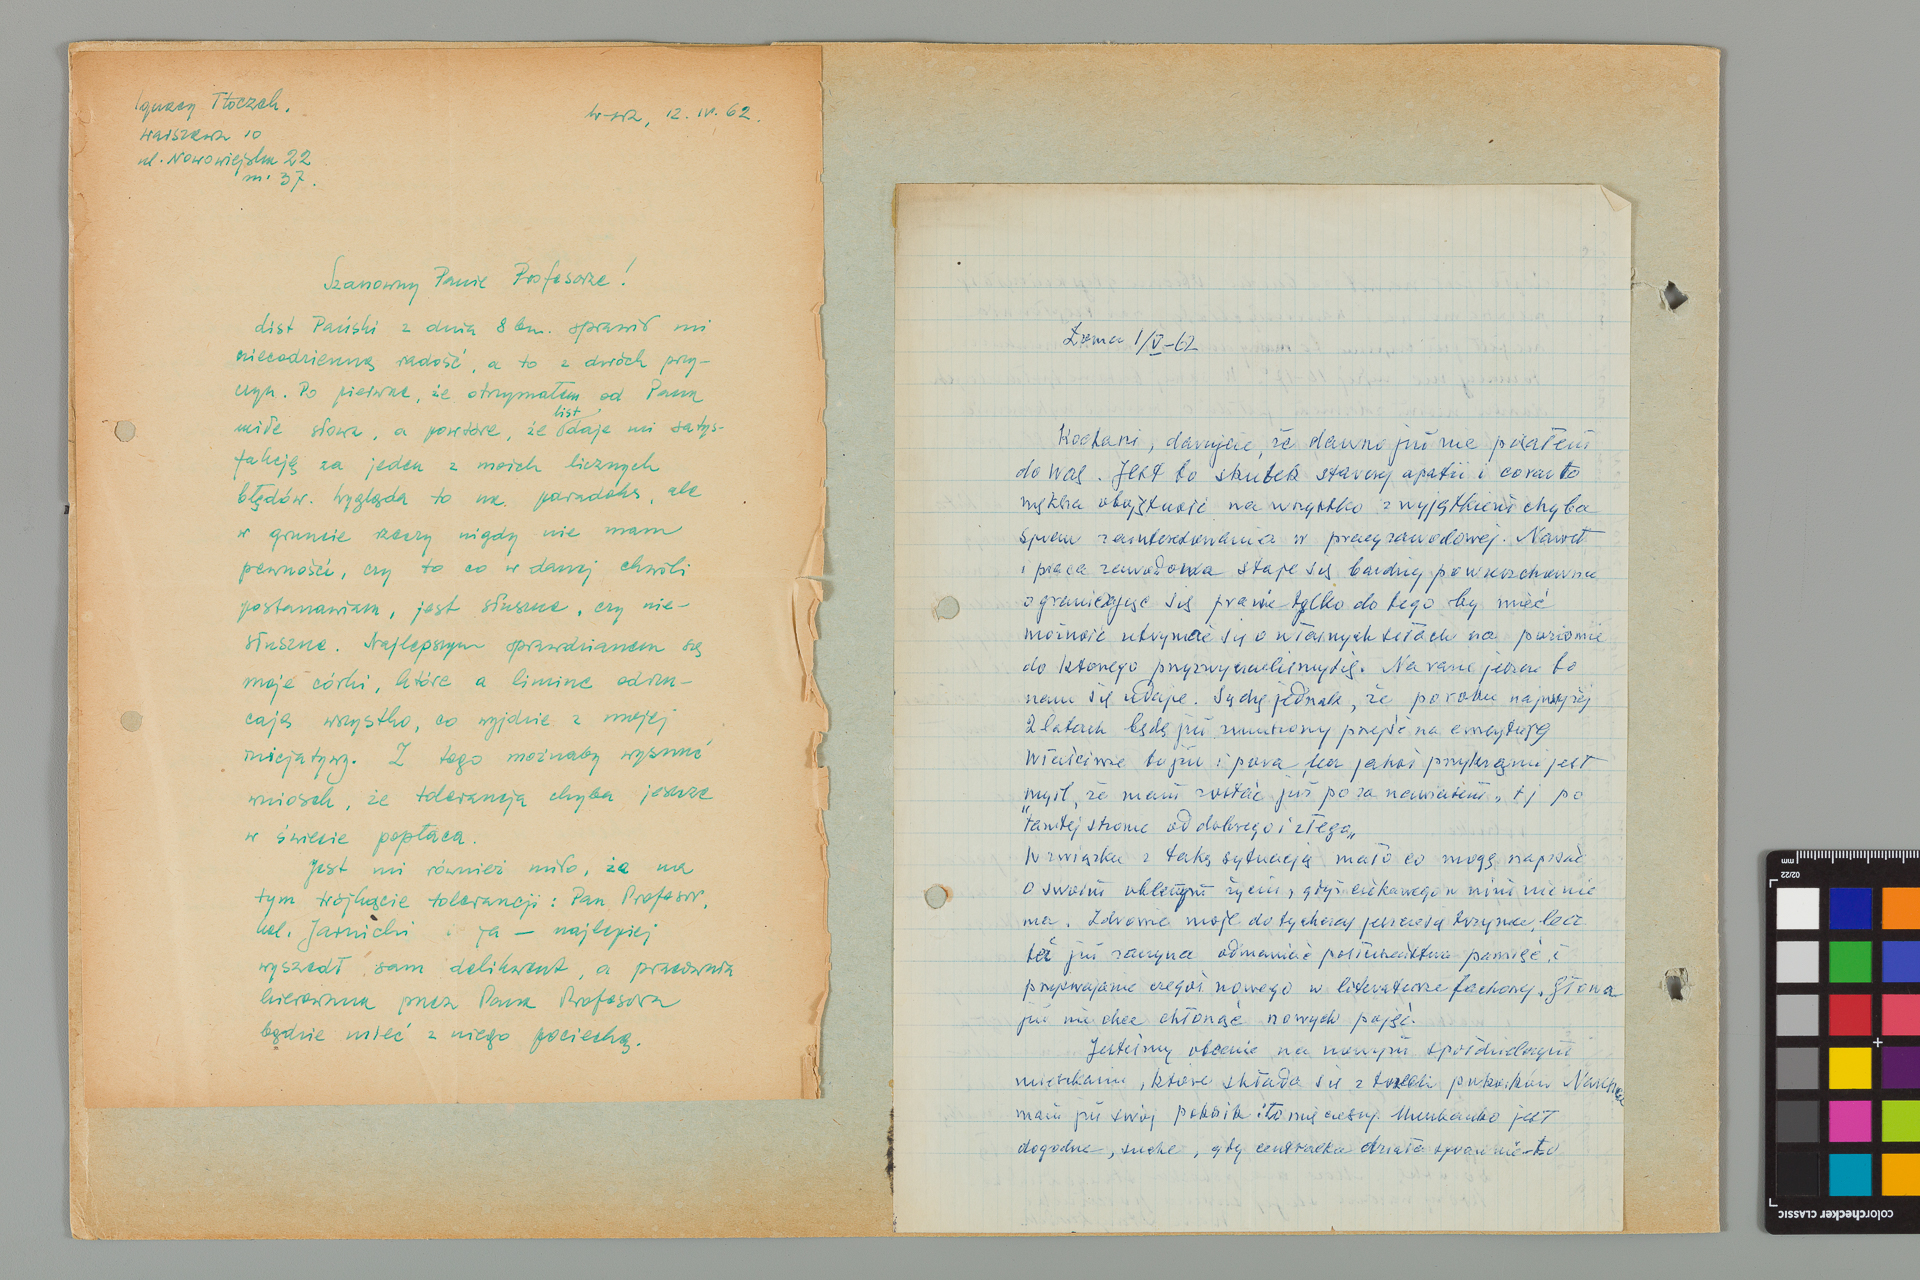 Ignacy Tłoczek.
Warszawa 10
ul. Nowowiejska 22
m. 37.
W-wa, 12. IV. 62.
Szanowny Panie Profesorze!
List Pański z dnia 8 bm. sprawił mi
niecodzienną radość, a to z dwóch przy-
czyn. Po pierwsze, że otrzymałem od Pana
miłe słowa, a powtóre, że list daje mi satys-
fakcję za jeden z moich licznych
błędów. Wygląda to na paradoks, ale
w gruncie rzeczy nigdy nie mam
pewności, czy to co w danej chwili
postanawiam, jest słuszne, czy nie-
słuszne. Najlepszym sprawdzianem są
moje córki, które a limine odrzu-
cają wszystko, co wyjdzie z mojej
inicjatywy. Z tego możnaby wysunąć
wniosek, że tolerancja chyba jeszcze
w świecie popłaca.
Jest mi również miło, że na
tym trójkącie tolerancji: Pan Profesor,
kol. Jarnicki i ja — najlepiej
wyszedł sam delikwent, a pracownia
kierowana przez Pana Profesora
będzie mieć z niego pociechę.
1/V-62
Kochani, darujcie, że dawno już nie pisałem
do Was. Jest to skutek starczej apatii i coraz to
większa obojętność na wszystko z wyjątkiem chyba
spraw zainteresowania w pracy zawodowej. Nawet
i praca zawodowa staje się bardziej powierzchowna
ograniczając się prawie tylko do tego by mieć
możność utrzymać się o własnych siłach na poziomie
do którego przyzwyczailiśmy się. Na razie jeszcze to
nam się udaje. Sądzę jednak, że po roku najwyżej
2 latach będę już zmuszony przejść na emeryturę
Właściwie to już i pora, lecz jakoś przykra mi jest
myśl, że mam zostać już poza nawiasem, tj po
"tamtej stronie od dobrego i złego"
W związku z taką sytuacją mało co mogę napisać
o swoim obecnym życiu, gdyż ciekawego w nim nic nie
ma. Zdrowie moje dotychczas jeszcze się trzyma, lecz
też już zaczyna odmawiać posłuszeństwa pamięć, i
przyswajanie czegoś nowego w literaturze fachowej. Głowa
już nie chce chłonąć nowych pojęć.
Jesteśmy obecnie na nowym spółdzielczym
mieszkaniu, które składa się z trzech pokoików
mam już swój pokoik i to mię cieszy. Mieszkanko jest
dogodne, suche, gdy centralka działa sprawnie-to